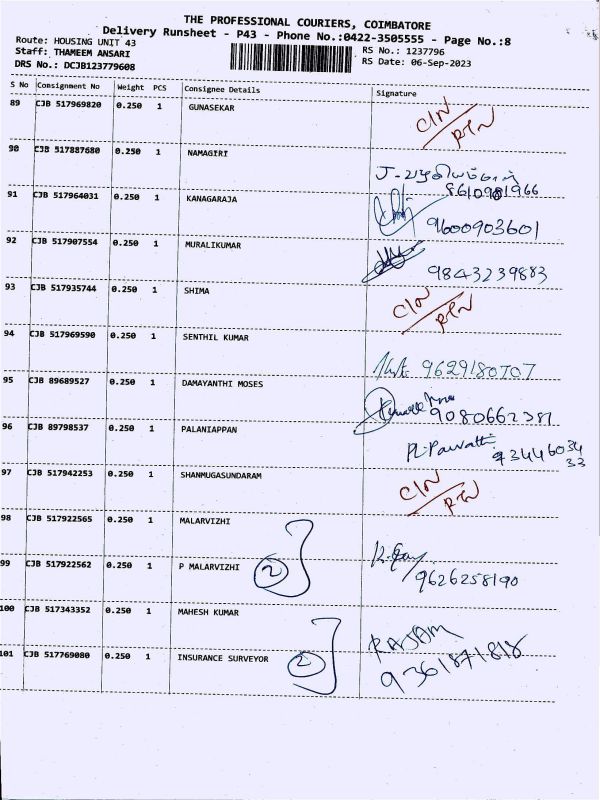 THE PROFESSIONAL COURIERS, COIMBATORE
Delivery Runsheet - P43 - Phone No.:0422-3505555 - Page No.:8
Route: HOUSING UNIT 43
RS No.: 1237796
Staff: THAMEEM ANSARI
RS Date: 06-Sep-2023
DRS No.: DCJB123779608
S No Consignment No Weight PCS Consignee Details Signature
89 CJB 517969820 0.250 1 GUNASEKAR C/N
RTN
90 CJB 517887680 0.250 1 NAMAGIRI
8610981966
91 CJB 517964031 0.250 1 KANAGARAJA
9600903601
92 CJB 517907554 0.250 1 MURALIKUMAR
9843239883
93 CJB 517935744 0.250 1 SHIMA C/N
RTN
94 CJB 517969590 0.250 1 SENTHIL KUMAR
9629180707
95 CJB 89689527 0.250 1 DAMAYANTHI MOSES
9080662381
96 CJB 89798537 0.250 1 PALANIAPPAN
PL.Parvathi 93446034
33
97 CJB 517942253 0.250 1 SHANMUGASUNDARAM C/N
RTN
98 CJB 517922565 0.250 1 MALARVIZHI
99 CJB 517922562 0.250 1 P MALARVIZHI 2
9626258190
100 CJB 517343352 0.250 1 MAHESH KUMAR
RAJAM
101 CJB 517769080 0.250 1 INSURANCE SURVEYOR 2
9361871818